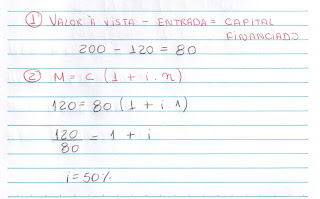 ① VALOR À VISTA - ENTRADA = CAPITAL
FINANCIADO
200 - 120 = 80
② M = C (1 + i . n)
120 = 80 (1 + i . 1)
120/80 = 1 + i
i = 50%